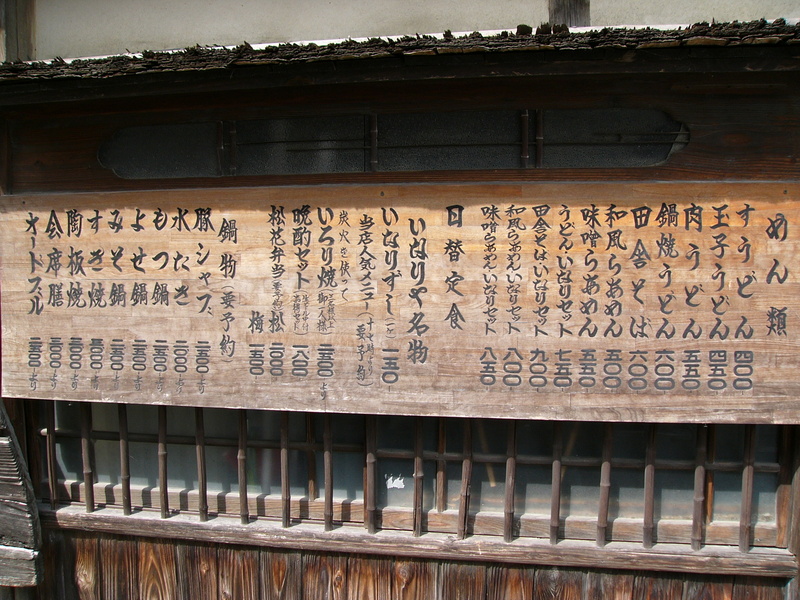 めん類
すうどん 四〇〇
玉子うどん 四五〇
肉うどん 五五〇
鍋焼うどん 六〇〇
田舎そば 六〇〇
和風らあめん 五〇〇
味噌らあめん 五五〇
うどんいなりセット 七五〇
田舎そばいなりセット 九〇〇
和風らあめんいなりセット 八〇〇
味噌らあめんいなりセット 八五〇
日替定食
いなりや名物
いなりずし(一ヶ) 一五〇
当店人気メニュー(十七時より)(要予約)
炭火を使って
いろり焼 より
晩酌セット 一八〇〇
松花弁当 松 二〇〇〇
梅 一五〇〇
鍋物(要予約)
豚シャブ 二五〇〇より
水たき 二〇〇〇より
もつ鍋 二五〇〇より
よせ鍋 二五〇〇より
みそ鍋 二五〇〇より
すき焼 より
陶板焼 より
会席膳 より
オードブル より